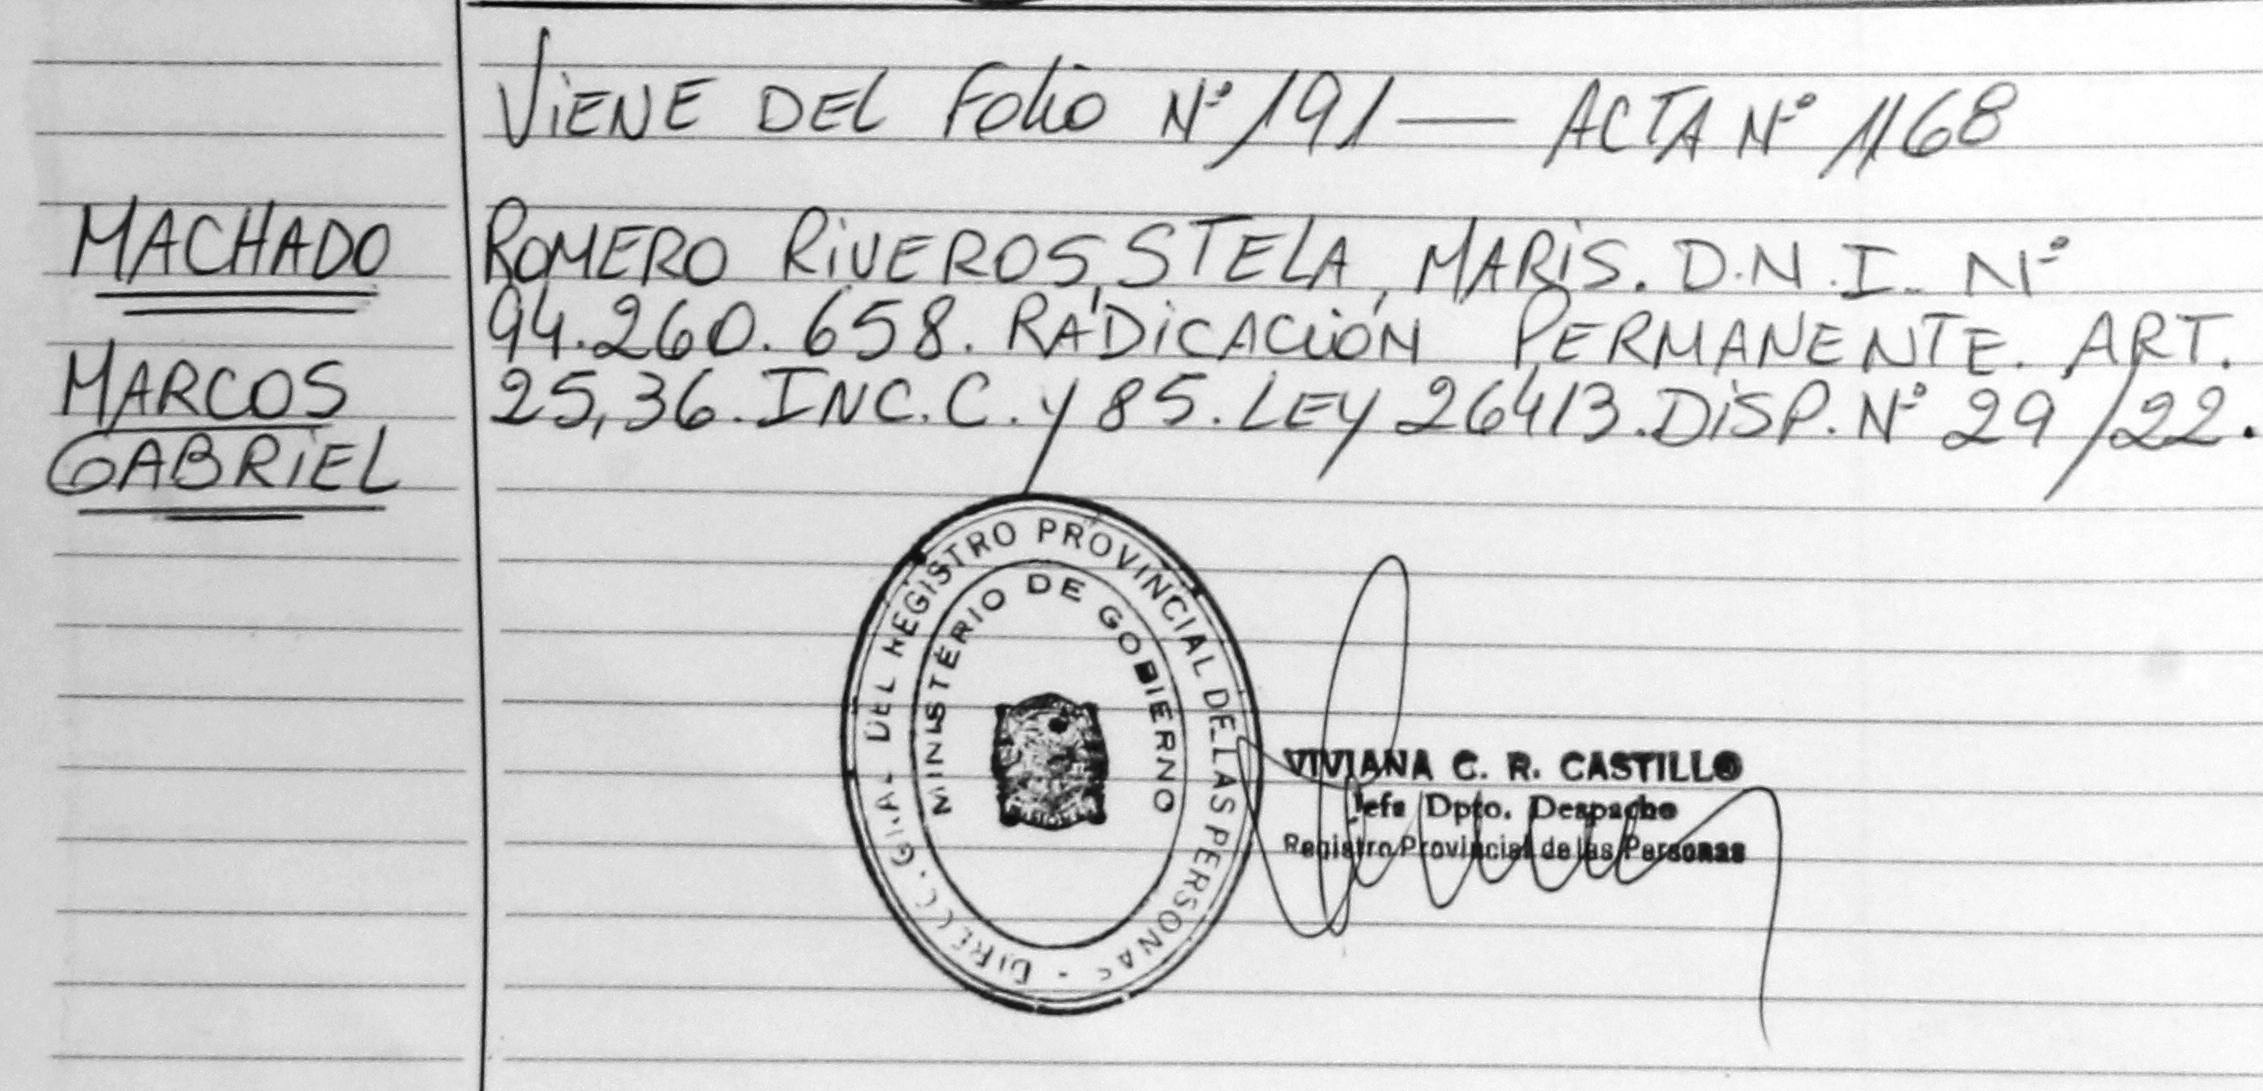 ViENE DEL Folio Nº 191 — ACTA Nº 1168
MACHADO
MARCOS
GABRiEL
ROMERO RiVEROS, STELA, MARiS. D.N.I. Nº
94.260.658. RADiCACiÓN PERMANENTE. ART.
25,36. INC. C. y 85. LEY 26413. DiSP. Nº 29/22.
DIRECC. GRAL DEL REGISTRO PROVINCIAL DE LAS PERSONAS -
MINISTERIO DE GOBIERNO
VIVIANA C. R. CASTILLO
Jefa Dpto. Despacho
Registro Provincial de las Personas